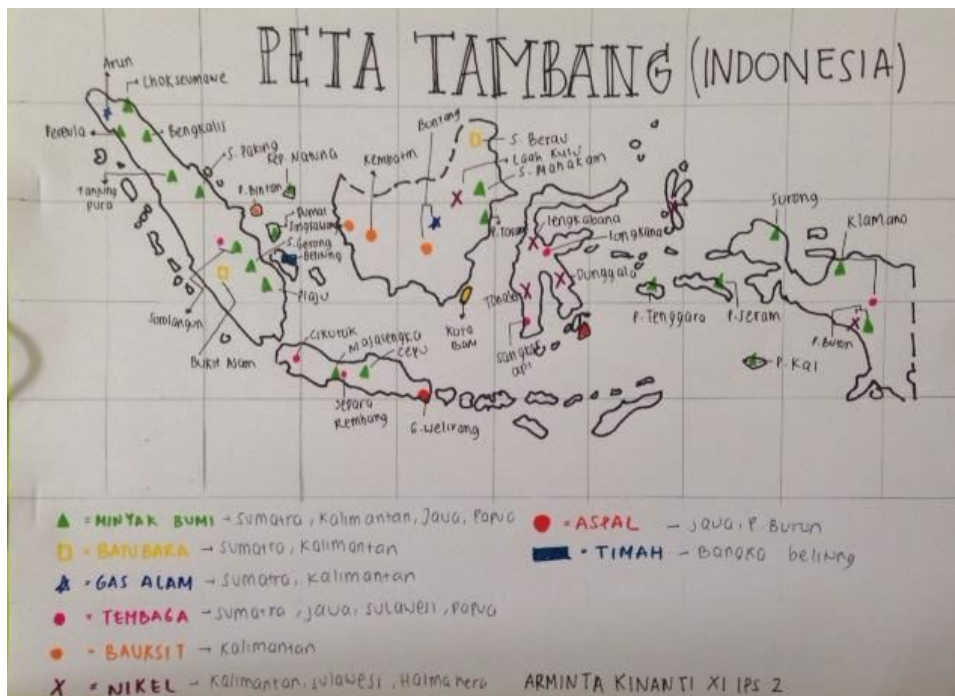 PETA TAMBANG (INDONESIA)
Arun
Lhokseumawe
Pereula
Bengkalis
Tanjung
Pura
S. Paking
Kep. Natuna
P. Bintan
Dumai
S. Gerong
Belitung
Plaju
Sorolangun
Bukit Asam
Kembatin
Buntang
S. Berau
Laah Kulu
S. Mahakam
P. Tarakan
Kota
Baru
Cikotok
Majalengka
Cepu
Jepara
Rembang
G. Welirang
Tengkabana
Tongkana
Dunggala
Sangkar
api
P. Tenggara
P. Seram
P. Kai
Sorong
Klamano
P. Buton
= MINYAK BUMI → Sumatra, Kalimantan, Jawa, Papua
= BATUBARA → Sumatra, Kalimantan
= GAS ALAM → Sumatra, Kalimantan
= TEMBAGA → Sumatra, Jawa, Sulawesi, Papua
= BAUKSIT → Kalimantan
= NIKEL → Kalimantan, Sulawesi, Halmahera
= ASPAL → Jawa, P. Burun
= TIMAH → Bangka beliting
ARMINTA KINANTI XI IPS 2